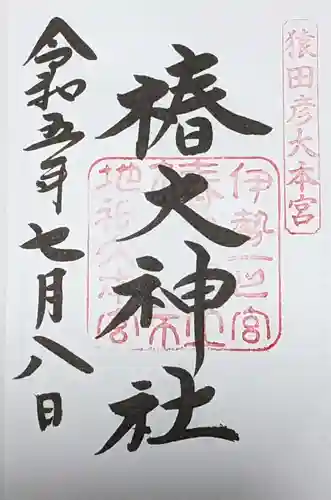 猿田彦大本宮
椿大神社
伊勢一之宮
椿大神社
地祇大本宮
令和五年七月八日